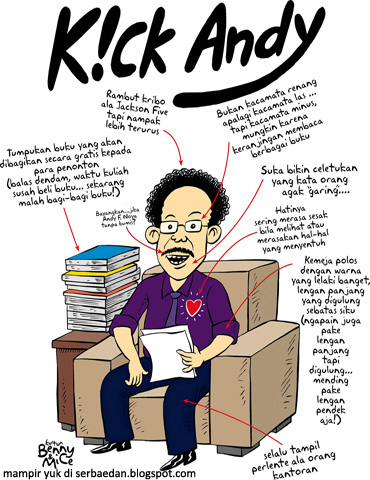 K!CK Andy
Rambut kribo
ala Jackson Five
tapi nampak
lebih terurus
Bukan kacamata renang
apalagi kacamata las ...
tapi kacamata minus,
mungkin karena
keranjingan membaca
berbagai buku
Tumpukan buku yang akan
dibagikan secara gratis kepada
para penonton
(balas dendam, waktu kuliah
susah beli buku... sekarang
malah bagi-bagi buku!)
Suka bikin celetukan
yang kata orang
agak "garing....
Bayangkan...jika
Andy F. Noya
tanpa kumis?
Hatinya
sering merasa sesak
bila melihat atau
merasakan hal-hal
yang menyentuh
Kemeja polos
dengan warna
yang lelaki banget,
lengan panjang
yang digulung
sebatas siku
(ngapain juga
pake
lengan
panjang
tapi
digulung...
mending
pake
lengan
pendek
aja!)
selalu tampil
perlente ala orang
kantoran
kartun
Benny
& Mice
mampir yuk di serbaedan.blogspot.com